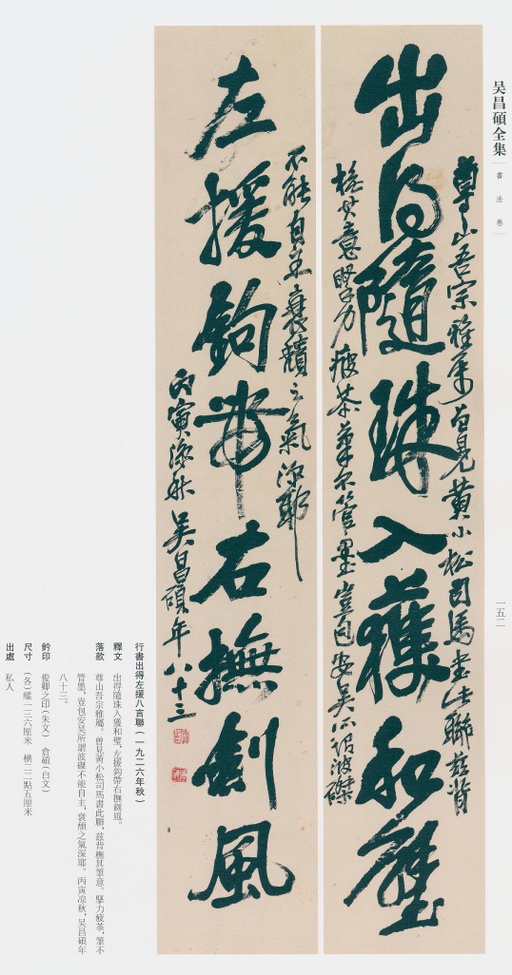 吴昌碩全集
書法卷
一五二
出得隨珠入獲和璧
尊山吾宗雅屬 曾見黃小松司馬書此聯茲背
橅其意擥力疲苶筆不管墨豈包安吳所謂波磔
左援鉤帶右撫劍風
不能自主衰穨之氣深耶
丙寅涼秋 吳昌碩年八十三
行書出得左援八言聯（一九二六年秋）
釋文 出得隨珠入獲和璧，左援鉤帶右撫劍風。
落款 尊山吾宗雅屬。曾見黃小松司馬書此聯，茲背橅其筆意。擥力疲苶，筆不
管墨，豈包安吳所謂波磔不能自主，衰頹之氣深耶。丙寅涼秋，吳昌碩年
八十三。
鈐印 俊卿之印（朱文） 倉碩（白文）
尺寸 （各）縱一三六厘米 橫二二點五厘米
出處 私人